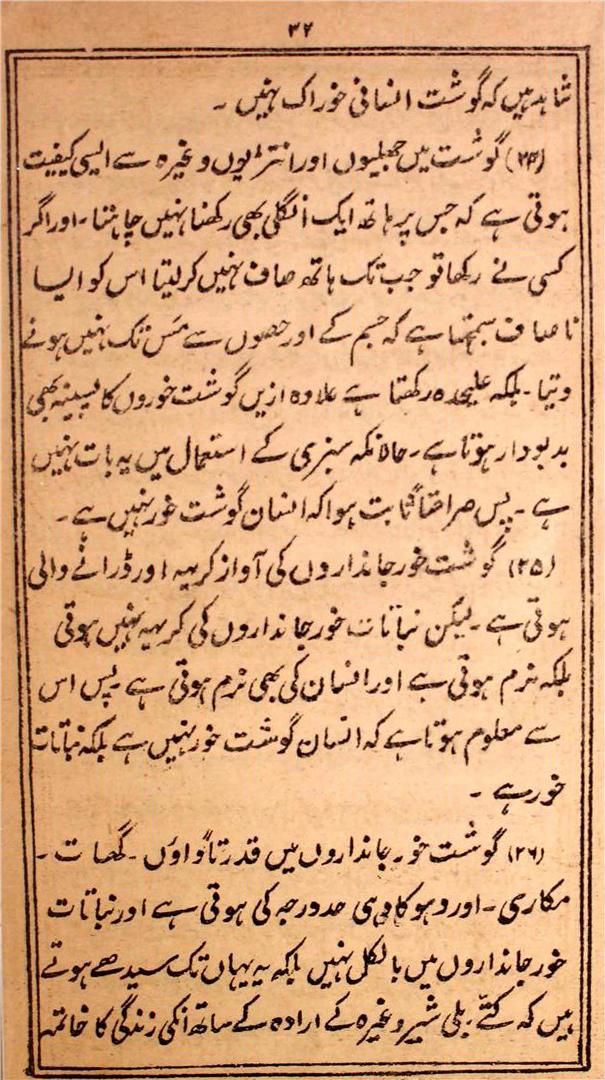 ۳۲
شاہد ہیں کہ گوشت انسانی خوراک نہیں ۔
(۲۴) گوشت میں جھلیوں اور انتڑیوں وغیرہ سے ایسی کیفیت
ہوتی ہے کہ جس پر ہاتھ ایک اُنگلی بھی رکھنا نہیں چاہتا ۔ اور اگر
کسی نے رکھا تو جب تک ہاتھ صاف نہیں کر لیتا اس کو ایسا
نا صاف سمجہتا ہے کہ جسم کے اور حصوں سے مَس تک نہیں ہونے
دیتا ۔ بلکہ علیحدہ رکھتا ہے علاوہ ازیں گوشت خوروں کا پسینہ بھی
بدبودار ہوتا ہے ۔ حالانکہ سبزی کے استعمال میں یہ بات نہیں
ہے ۔ پس صراحتاً ثابت ہوا کہ انسان گوشت خور نہیں ہے ۔
(۲۵) گوشت خور جانداروں کی آواز کریہہ اور ڈرانے والی
ہوتی ہے ۔ لیکن نباتات خور جانداروں کی کریہہ نہیں ہوتی
بلکہ نرم ہوتی ہے اور انسان کی بھی نرم ہوتی ہے ۔ پس اس
سے معلوم ہوتا ہے کہ انسان گوشت خور نہیں ہے بلکہ نباتات
خور ہے ۔
(۲۶) گوشت خور جانداروں میں قدرتاً داؤں ۔ گھات ۔
مکاری ۔ اور دہوکا دہی حد درجہ کی ہوتی ہے اور نباتات
خور جانداروں میں بالکل نہیں بلکہ یہ یہاں تک سیدھے ہوتے
ہیں کہ کتّے ۔ بلی شیر وغیرہ کے ارادہ کے ساتھ انکی زندگی کا خاتمہ